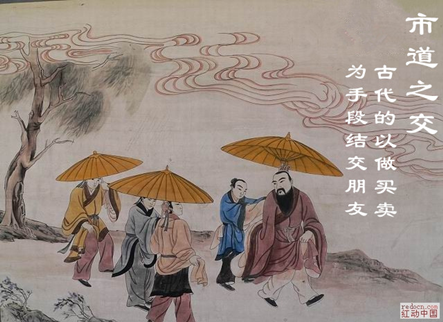 市道之交
古代的以做买卖
为手段结交朋友
redocn.com
红动中国